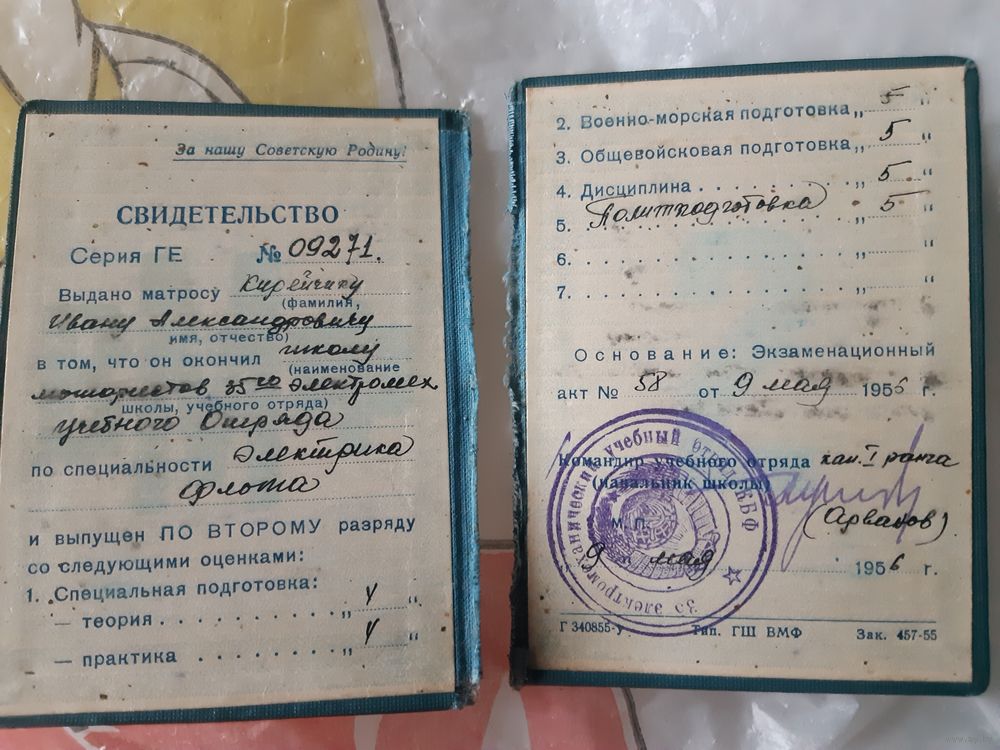 За нашу Советскую Родину!
СВИДЕТЕЛЬСТВО
Серия ГЕ № 09271.
Выдано матросу
(фамилия,
Ивану Александровичу
имя, отчество)
в том, что он окончил школу
(наименование
мотористов 35го Электромех
школы, учебного отряда)
учебного Отряда
по специальности Электрика
Флота
и выпущен ПО ВТОРОМУ разряду
со следующими оценками:
1. Специальная подготовка:
— теория . . . . . . . . „ 4 “
— практика . . . . . . . . „ 4 “
2. Военно-морская подготовка „ 5 “
3. Общевойсковая подготовка „ 5 “
4. Дисциплина . . . . . . . . „ 5 “
5. Политподготовка „ 5 “
6. . . . . . . . . . . . „ “
7. . . . . . . . . . . . „ “
Основание: Экзаменационный
акт № 58 от 9 мая 1956 г.
Командир учебного отряда кап. I ранга
(начальник школы)
М. П. (Арванов)
„ 9 “ мая 1956 г.
электромеханический учебный отряд КБФ
Г 340855-У. Тип. ГШ ВМФ Зак. 457-55